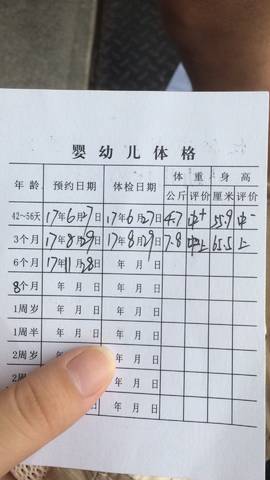 婴幼儿体格
年龄 预约日期 体检日期 体重 身高
公斤 评价 厘米 评价
42~56天 17年6月27日 17年6月27日 4.7 中+ 55.9 中-
3个月 17年8月29日 17年8月29日 7.8 中上 65.5 上
6个月 17年11月28日 年月日
8个月 年月日 年月日
1周岁 年月日 年月日
1周半 年月日 年月日
2周岁 年月日 年月日
年月日
年月日